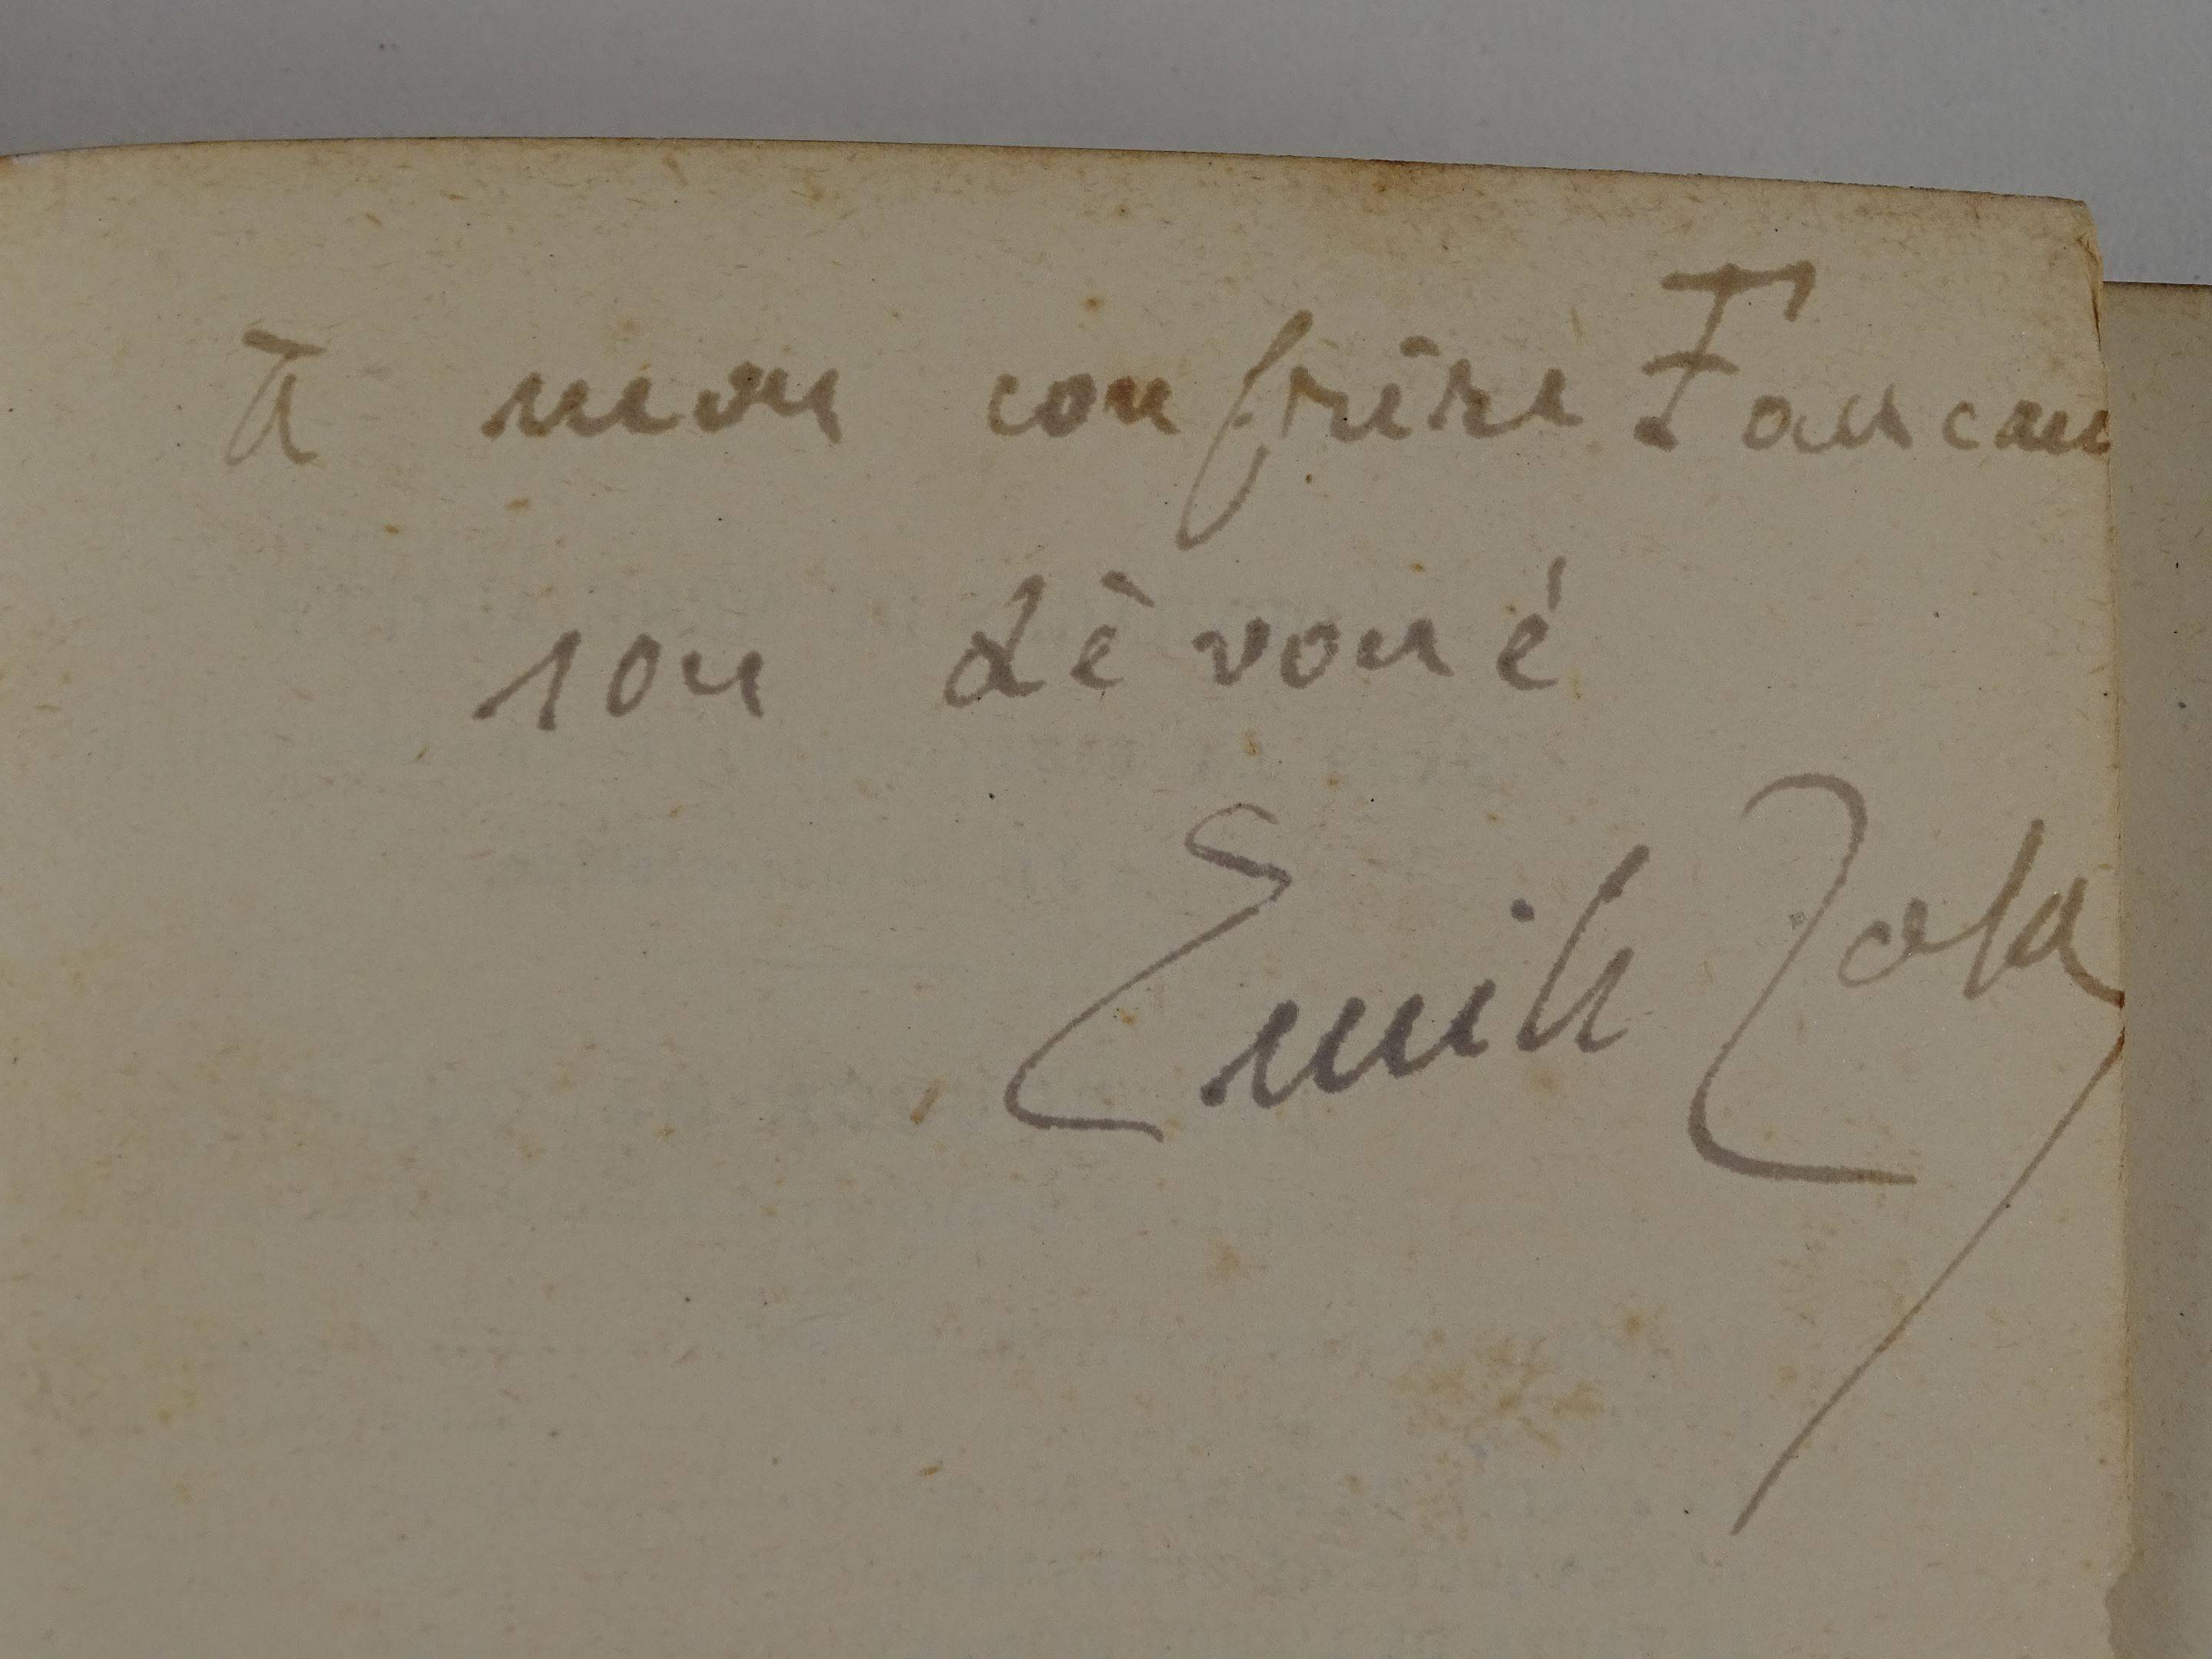 à mon confrère Faucau
son dévoué
Emile Zola